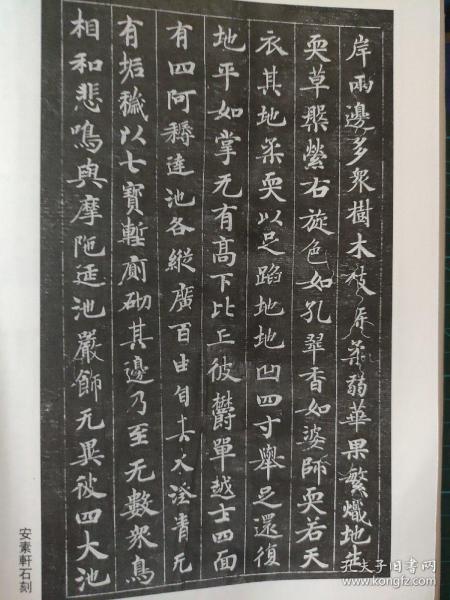 岸兩邊多眾樹木枝葉柔弱華果繁熾地生
耎草槃縈右旋色如孔翠香如婆師耎若天
衣其地柔耎以足蹈地地凹四寸舉足還復
地平如掌无有高下比丘彼欝單越土四面
有四阿耨達池各縱廣百由旬其水澄清无
有垢穢以七寶塹廁砌其邊乃至无數眾鳥
相和悲鳴與摩陁延池嚴飾无異彼四大池
安素軒石刻
孔夫子旧书网